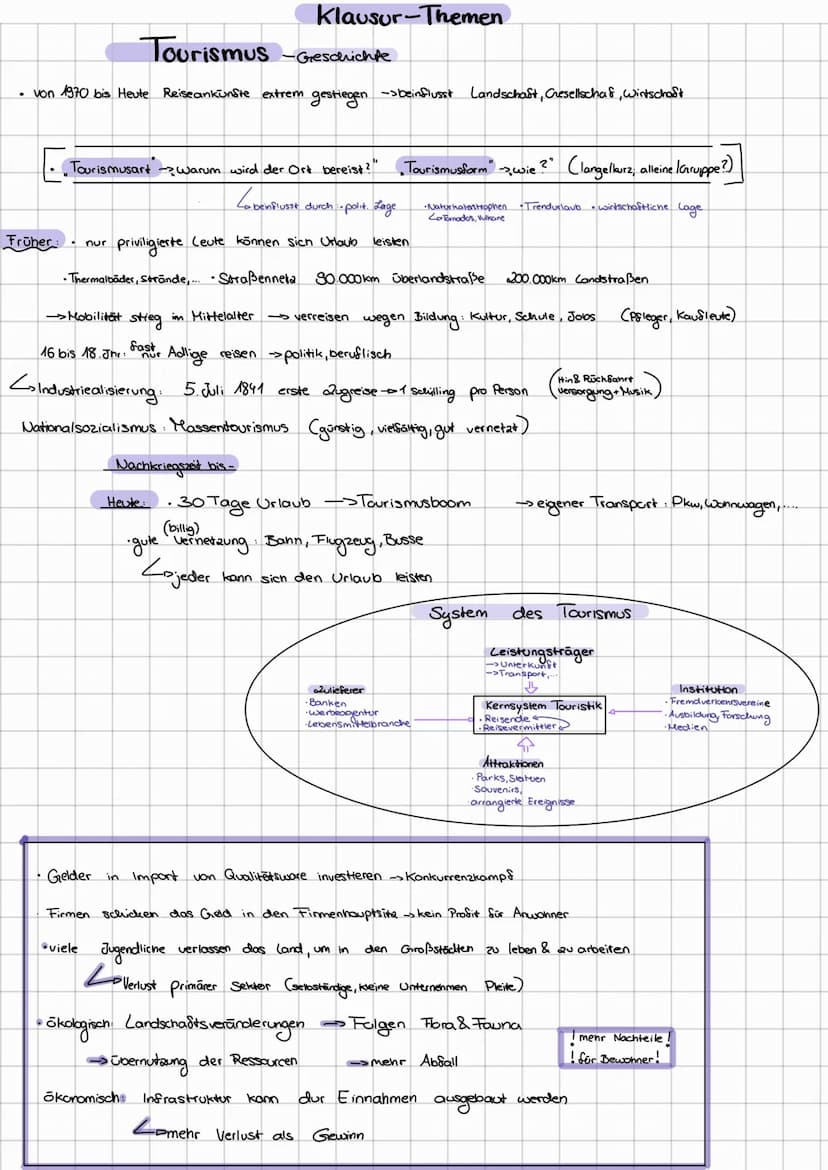 Klausur-Themen
Tourismus - Geschichte
• von 1970 bis Heute Reiseankünfte extrem gestiegen -> beinflusst Landschaft, Gesellschaf, Wirtschaft
• „Tourismusart" -> „Warum wird der Ort bereist?" „Tourismusform" -> „wie?" (lange/kurz, alleine/Gruppe?)
↳ beinflusst durch • polit. Lage • Naturkatastrophen • Trendurlaub • wirtschaftliche Lage
↳ Tornados, Vulkane
Früher: • nur priviligierte Leute können sich Urlaub leisten
• Thermalbäder, Strände,... • Straßennetz 90.000km Überlandstraße 200.000km Landstraßen
-> Mobilität stieg im Mittelalter -> verreisen wegen Bildung: Kultur, Schule, Jobs (Pfleger, Kaufleute)
16 bis 18. Jhr.: fast nur Adlige reisen -> politik, beruflisch
↳ Industriealisierung: 5. Juli 1841 erste Zugreise -> 1 Schilling pro Person (Hin & Rückfahrt Versorgung + Musik)
Nationalsozialismus: Massentourismus (günstig, vielfältig, gut vernetzt)
Nachkriegszeit bis-
Heute: • 30 Tage Urlaub -> Tourismusboom -> eigener Transport: Pkw, Wohnwagen,....
• gute (billig) Vernetzung: Bahn, Flugzeug, Busse
↳ jeder kann sich den Urlaub leisten
System des Tourismus
Leistungsträger
-> Unterkunft
-> Transport,...
Zulieferer
• Banken
• Werbeagentur
• Lebensmittelbranche
Kernsystem Touristik
• Reisende
• Reisevermittler
Institution
• Fremdverkehrsvereine
• Ausbildung, Forschung
• Medien
Attraktionen
• Parks, Statuen
• Souvenirs,
arrangierte Ereignisse
• Gelder in Import von Qualitätsware investieren -> Konkurrenzkampf
• Firmen schicken das Geld in den Firmenhauptsitz -> kein Profit für Anwohner
• viele Jugendliche verlassen das Land, um in den Großstädten zu leben & zu arbeiten
↳ Verlust primärer Sektor (selbständige, kleine Unternehmen Pleite)
• ökologisch: Landschaftsveränderungen -> Folgen Flora & Fauna
-> Übernutzung der Ressourcen -> mehr Abfall
! mehr Nachteile !
! für Bewohner !
ökonomisch: Infrastruktur kann dur Einnahmen ausgebaut werden
↳ mehr Verlust als Gewinn